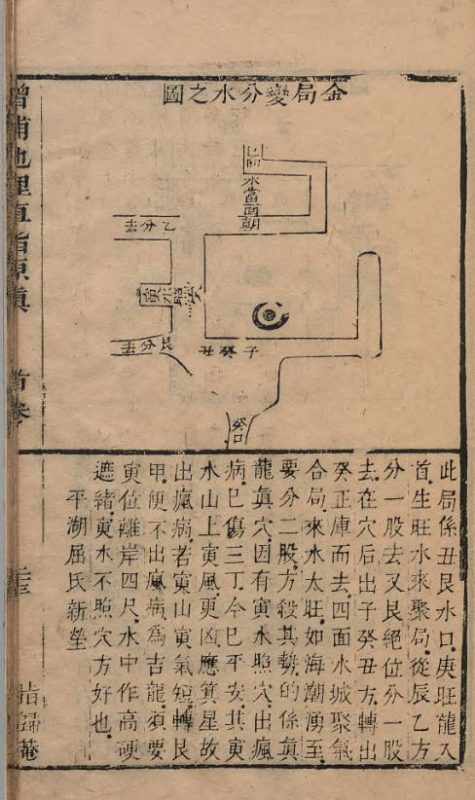 金局變分水之圖
水當面朝
乙分去
寅水照穴
艮分去
子癸丑
癸口
此局係丑艮水口庚旺龍入
首生旺水來聚局從辰乙方
分一股去又艮絕位分一股
去在穴后出子癸丑方轉出
癸正庫而去四面水城聚氣
合局來水太旺如海潮湧至
要分二股方殺其勢的係眞
龍眞穴因有寅水照穴出瘋
病已傷三丁今已平安其寅
水山上寅風更凶應箕星故
出瘋病若寅山寅氣短轉艮
甲便不出瘋病爲吉龍須要
寅位離岸四尺水中作高硬
遮緒寅水不照穴方好也
平湖屈氏新塋
增補地理直指原眞
首卷